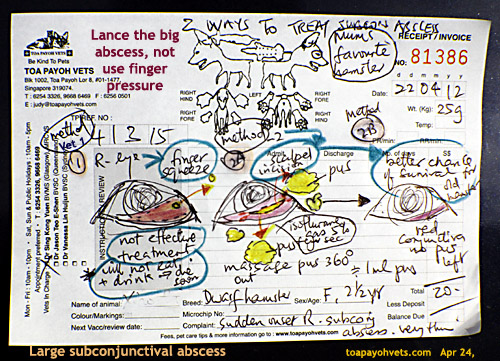 2 WAYS TO TREAT SUBCON ABSCESS
Lance the big
abscess, not
use finger
pressure
Mum's
favourite
hamster
RECEIPT / INVOICE
No. 81386
Be Kind To Pets
TOA PAYOH VETS
Blk 1002, Toa Payoh Lor 8, #01-1477,
Singapore 319074.
T : 6254 3326, 9668 6469 F : 6256 0501
E : judy@toapayohvets.com
d d m m y y
22 04 12
Wt. (Kg): 25g
Temp:
RIGHT HIND
LEFT HIND
RIGHT FORE
TP/REF. NO :
41315
method
method 2
method
2B
PR/min:
RR/min:
Discharge
No. of days
S$
1
R-eye
finger
squeeze
2A
scalpel
incision
pus
better chance
of survival for
old hamster
Mon - Fri : 10am - 9pm, Sat, Sun & Public Holidays : 10am - 5pm
Appointment preferred - T : 6254 3326, 9668 6469
Vets In Charge
Dr Sing Kong Yuen BVMS (Glasgow), MRCVS
Dr Jason Teo
Dr Vanessa Lin
INSTRUCTIONS/REVIEW
not effective
treatment
will not eat
+ drink → die
soon
isoflurane
gas 5%
sec
pus
massage pus 360°
out
= 1 ml pus
red
conjunctiva
no pus
left
Name of animal:
Breed:
Dwarf hamster
Sex/Age:
F, 2½ yr
Total
20-
Colour/Markings:
Microchip No:
Less Deposit
Next Vacc/review date:
Complaint:
sudden onset R. subconj
abscess. very thin
Balance Due
Fees, pet care tips & more info goto www.toapayohvets.com
Large subconjunctival abscess
www.toapayohvets.com Apr 24,